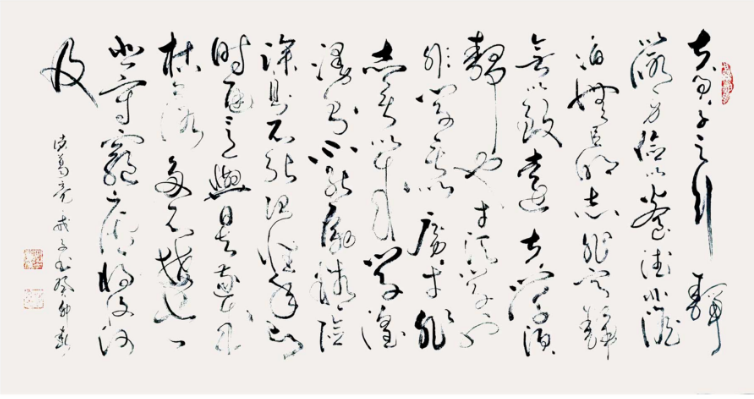 夫君子之行静
以修身俭以养德非澹
泊无以明志非宁静
无以致远夫学须
静也才须学也
非学无以广才非
志无以成学淫
慢则不能励精险
躁则不能治性年与
时驰意与日去遂成
枯落多不接世
悲守穷庐将复何
及
诸葛亮戒子书癸卯